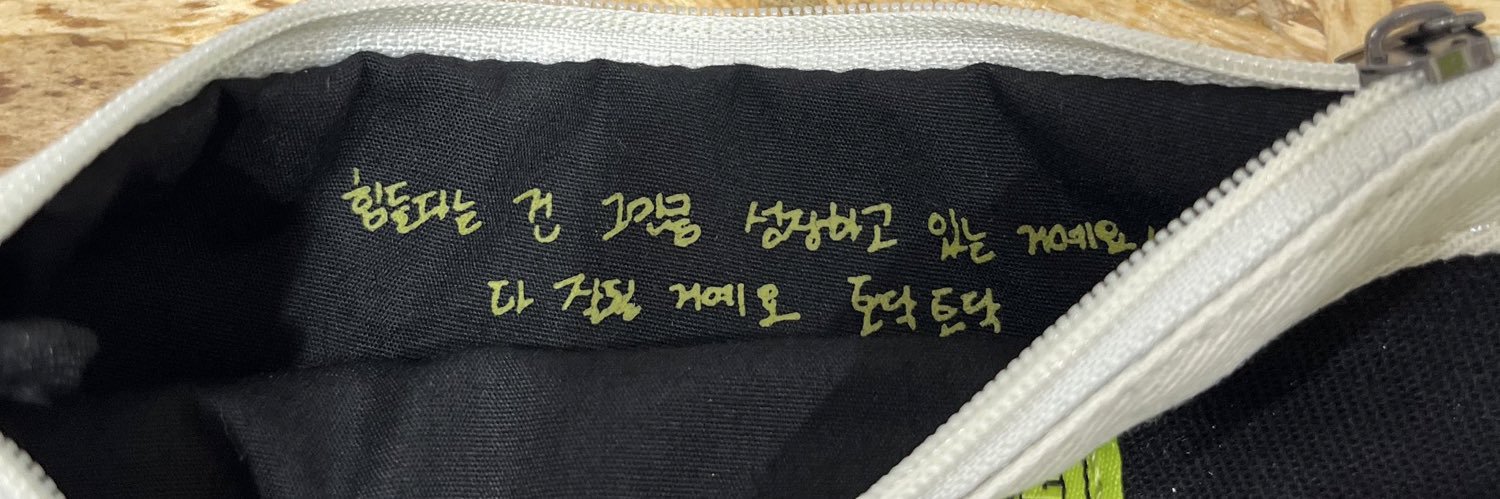 힘들다는 건 그만큼 성장하고 있는 거예요
다 잘될 거예요 토닥토닥